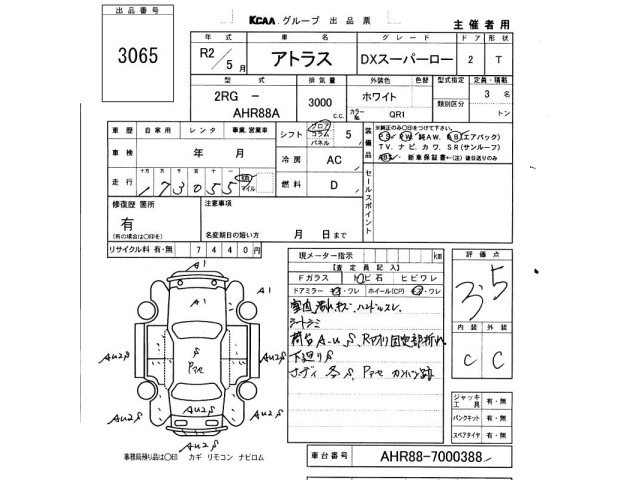 出品番号
3065
KCAA グループ 出品票
主催者用
年式 車名 グレード ドア 形状
R2/5月 アトラス DXスーパーロー 2 T
型式 排気量 外装色 色替 型式指定 定員・積載
2RG - AHR88A 3000 c.c. ホワイト 類別区分 3名
カラーNo. QR1 トン
車歴 自家用 レンタ 事業、営業車
シフト フロア コラム パネル 5
装備品
※純正のみ○印をつけて下さい。
PS PW 純AW. AB(エアバック)
TV. ナビ. カワ. SR(サンルーフ)
ABS 新車保証書←(注)後日送りのみ
車検 年 月
冷房 AC
走行 十万 万 千 百 十 173055 km マイル
燃料 D
セールスポイント
修復歴 箇所
有
(有の場合は○印を)
注意事項
名変期日の短い方 月 日まで
リサイクル料 有・無 7440円
現メーター指示 km
【査定員記入】
Fガラス トビ石 ヒビワレ
ドアミラー キズ・ワレ ホイール(CP) キズ・ワレ
室内汚れキズ、ハンドルスレ
シートシミ
荷台 A-U、S、Rアオリ固定部折れ
下廻りS
評価点
3.5
内装 外装
C C
A1
A1
AU2S
AU2S
S
AU2S
AU2S
AU2S
AU2S
ジャッキ 工具 有・無
パンクキット 有・無
スペアタイヤ 有・無
事務局預り品は○印 カギ リモコン ナビロム
車台番号 AHR88-7000388